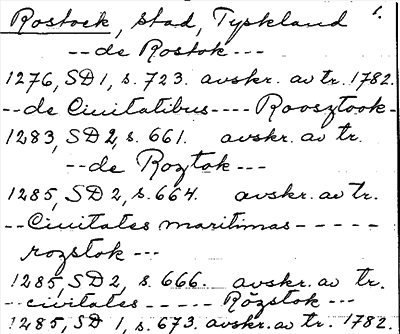 Rostock, stad, Tyskland 1.
--de Rostok---
1276, SD 1, s. 723. avskr. av tr. 1782.
--de Ciuitatibus---- Roosztook-
1283, SD 2, s. 661. avskr. av tr.
--de Roztok---
1285, SD 2, s. 664. avskr. av tr.
--Ciuitates maritimas-----
rozstok---
1285, SD 2, s. 666. avskr. av tr.
--civitates----- Rözstok---
1285, SD 1, s. 673. avskr. av tr. 1782.